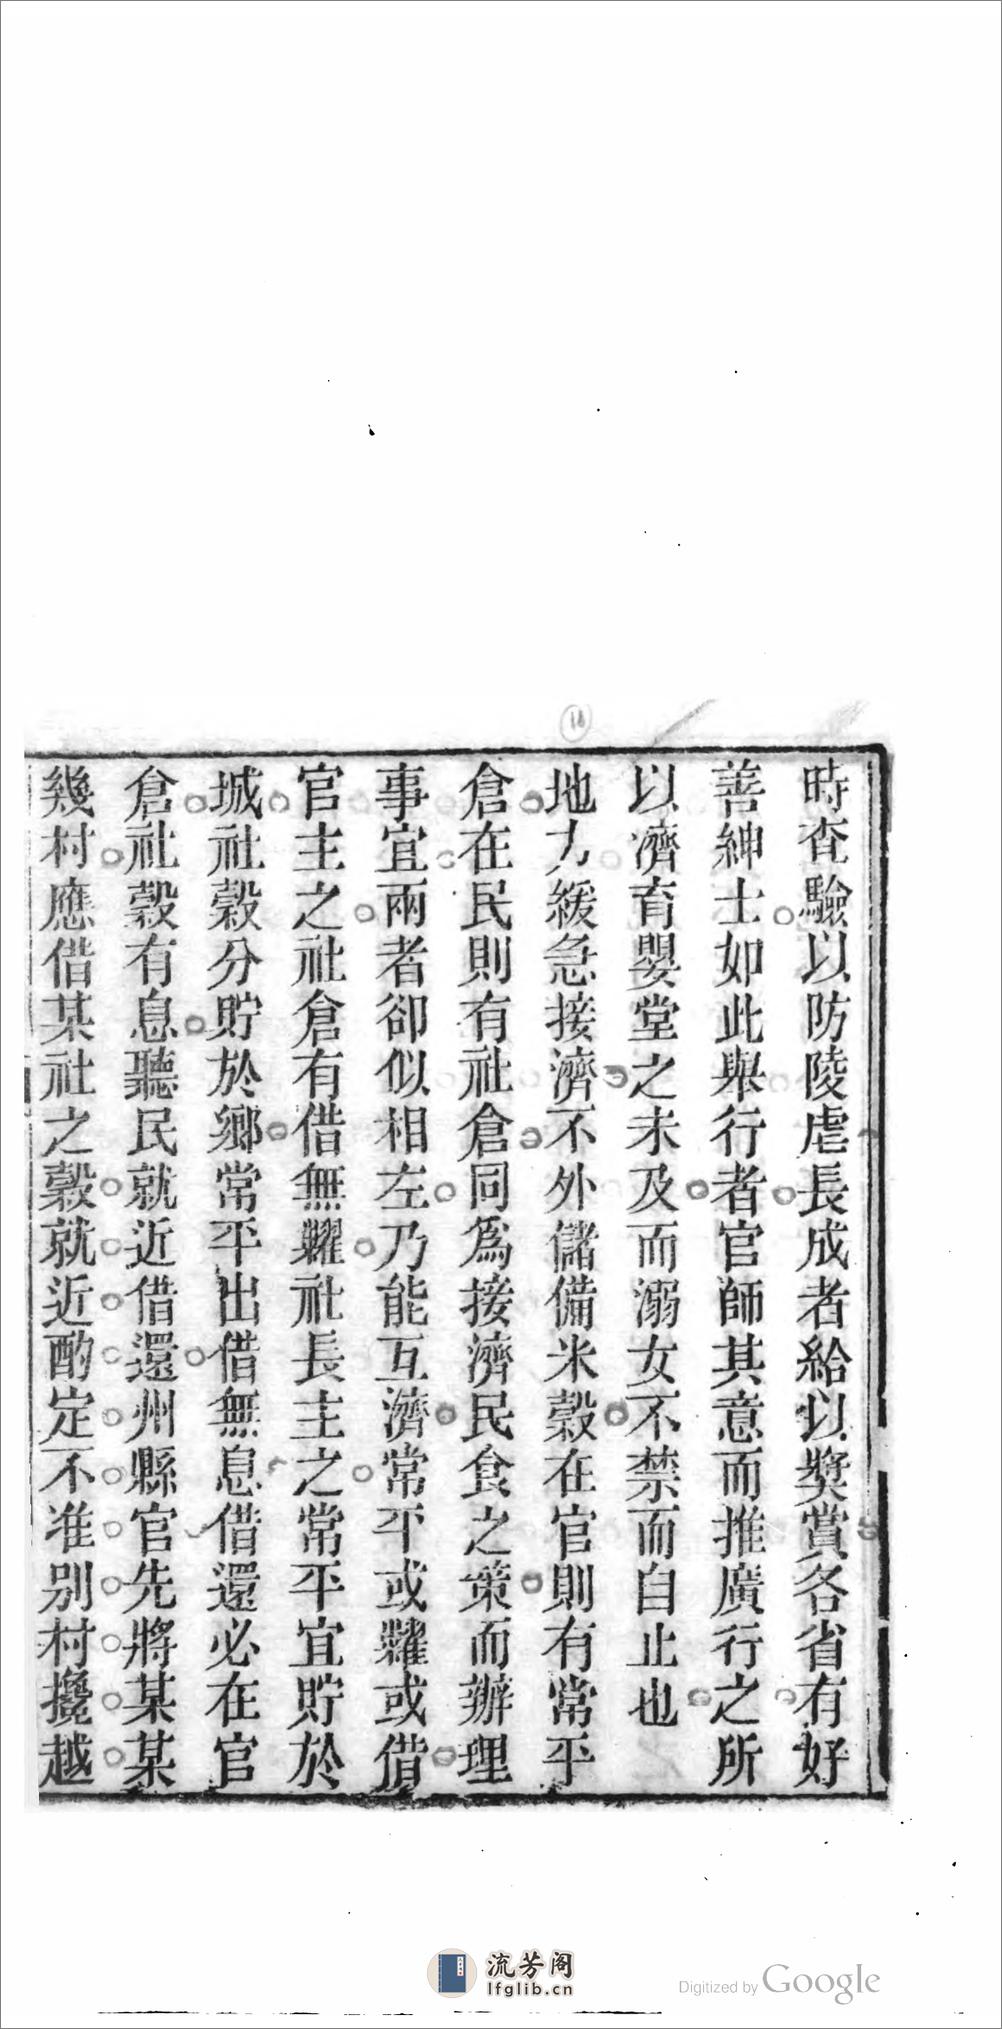 時查驗以防陵虐長成者給以獎賞各省有好
善紳士如此舉行者官師其意而推廣行之所
以濟育嬰堂之未及而溺女不禁而自止也
地方緩急接濟不外儲備米穀在官則有常平
倉在民則有社倉同爲接濟民食之策而辦理
事宜兩者卻似相左乃能互濟常平或糶或借
官主之社倉有借無糶社長主之常平宜貯於
城社穀分貯於鄉常平出借無息借還必在官
倉社穀有息聽民就近借還州縣官先將某某
幾村應借某社之穀就近酌定不准別村攙越
16
流芳阁
lfglib.cn
Digitized by Google